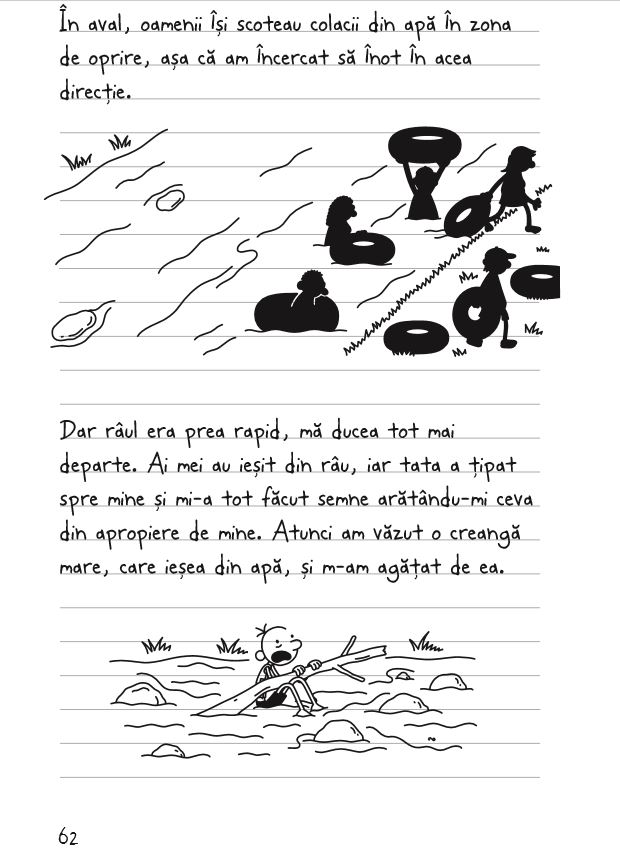 În aval, oamenii își scoteau colacii din apă în zona
de oprire, așa că am încercat să înot în acea
direcție.
Dar râul era prea rapid, mă ducea tot mai
departe. Ai mei au ieșit din râu, iar tata a țipat
spre mine și mi-a tot făcut semne arătându-mi ceva
din apropiere de mine. Atunci am văzut o creangă
mare, care ieșea din apă, și m-am agățat de ea.
62